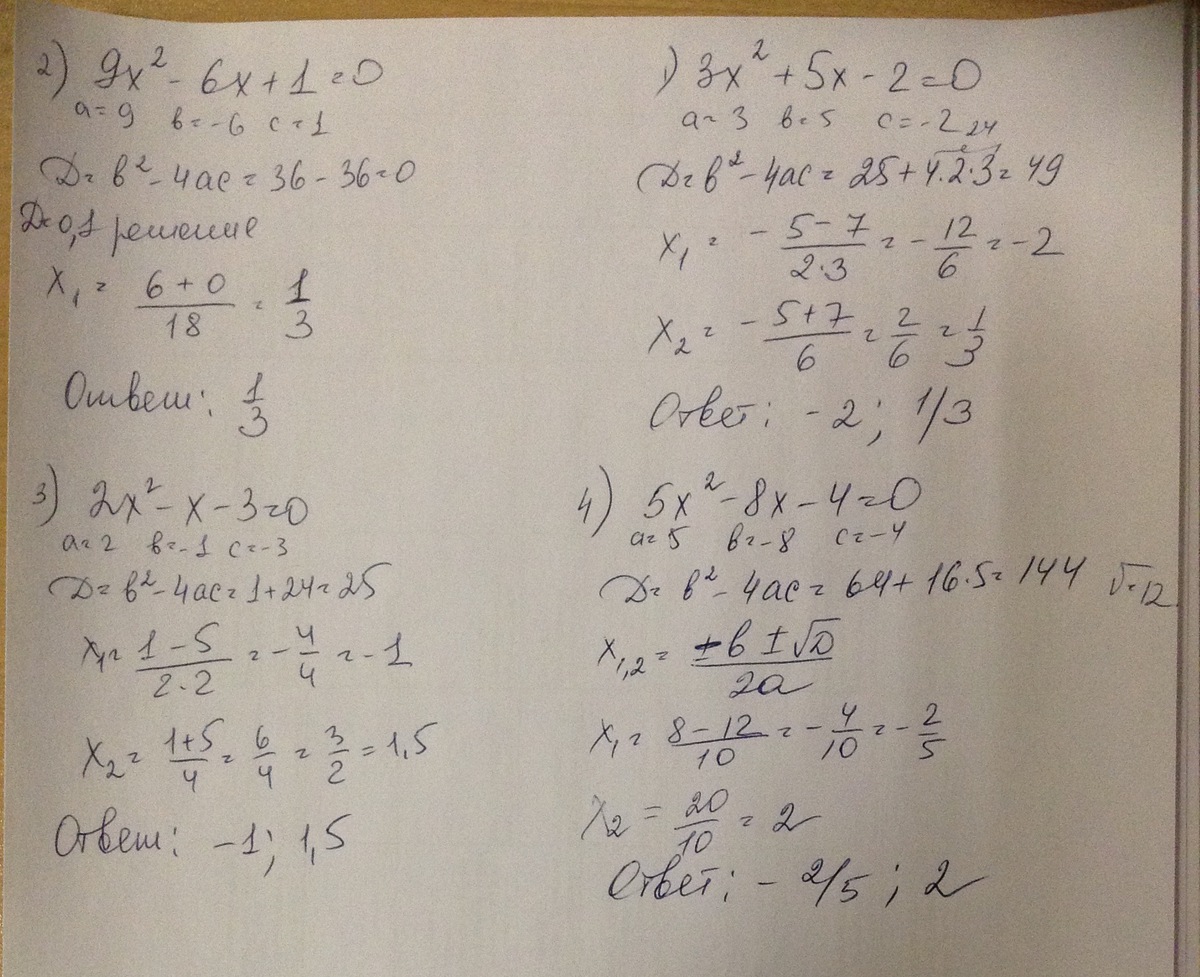 1) 3x² + 5x - 2 = 0
a = 3 в = 5 c = -2
24
D = в² - 4ac = 25 + 4·2·3 = 49
x₁ = -\frac{5-7}{2·3} = -\frac{12}{6} = -2
x₂ = -\frac{5+7}{6} = \frac{2}{6} = \frac{1}{3}
Ответ: -2; 1/3
2) 9x² - 6x + 1 = 0
a = 9 в = -6 c = 1
D = в² - 4ac = 36 - 36 = 0
D = 0, 1 решение
x₁ = \frac{6+0}{18} = \frac{1}{3}
Ответ: \frac{1}{3}
3) 2x² - x - 3 = 0
a = 2 в = -1 c = -3
D = в² - 4ac = 1 + 24 = 25
x₁ = \frac{1-5}{2·2} = -\frac{4}{4} = -1
x₂ = \frac{1+5}{4} = \frac{6}{4} = \frac{3}{2} = 1,5
Ответ: -1; 1,5
4) 5x² - 8x - 4 = 0
a = 5 в = -8 c = -4
D = в² - 4ac = 64 + 16·5 = 144 √ = 12
x₁,₂ = \frac{±в ± √D}{2a}
x₁ = \frac{8-12}{10} = -\frac{4}{10} = -\frac{2}{5}
x₂ = \frac{20}{10} = 2
Ответ: -2/5; 2